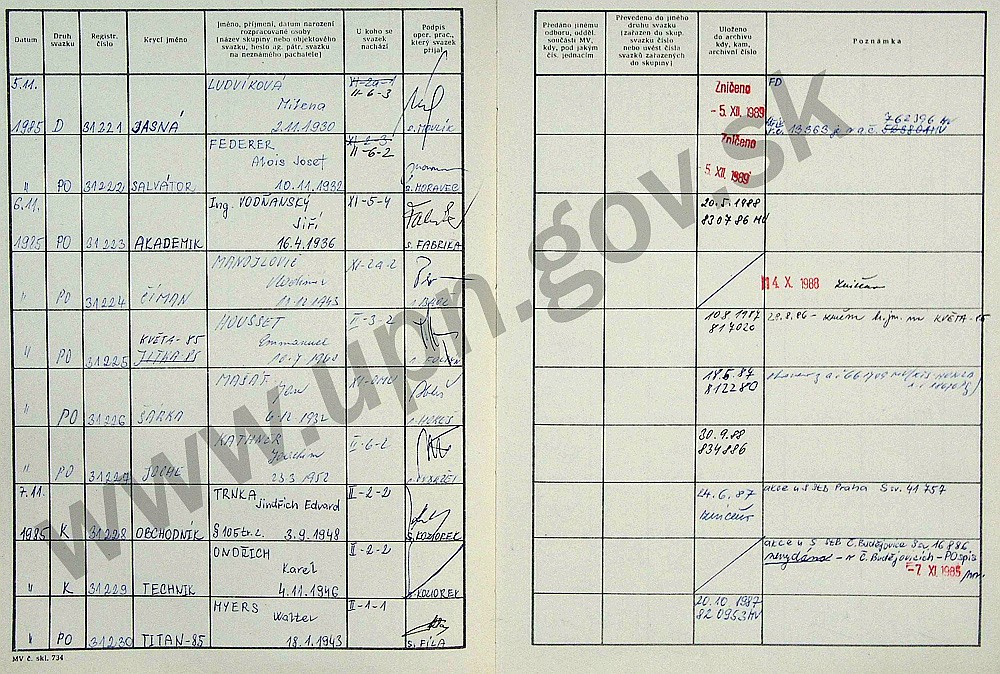 Datum
Druh svazku
Registr. číslo
Krycí jméno
Jméno, příjmení, datum narození
rozpracované osoby
[název skupiny nebo objektového
svazku, heslo ag. pátr. svazku
na neznámého pachatele]
U koho se svazek nachází
Podpis oper. prac., který svazek přijal
Předáno jinému odboru, odděl. součásti MV, kdy, pod jakým čís. jednacím
Převedeno do jiného druhu svazku [zařazen do skup. svazku číslo nebo uvést čísla svazků zařazených do skupiny]
Uloženo do archivu kdy, kam, archivní číslo
Poznámka
5.11. LUDVÍKOVÁ XI-2a-1
Milena II-6-3
1985 D 31221 JASNÁ 2.11.1930
Zničeno FD
- 5. XII. 1989 762396 MV
13363
FEDERER XI-2-3
Alois Josef II-6-2
" PO 31222 SALVÁTOR 10.11.1932 s. MORAVEC
Zničeno
5. XII. 1989
6.11. Ing. VODŇANSKÝ XI-5-4
Jiří
1985 PO 31223 AKADEMIK 16.4.1936 s. FABRIKA
20.5.1988
830786 MV
MANOJLOVIČ XI-2a-2
Vladimir
" PO 31224 ČÍMAN 11.12.1943
14. X. 1988 zničen
HOUSSET II-3-2
KVĚTA-85 Emmanuel
" PO 31225 JITKA-85 16.7.1948
10.8.1987 29.8.86 - změn. kr. jm. na KVĚTA-85
817020
MAŠÁT
Jan
" PO 31226 ŠÁRKA 6.12.1932
18.6.87
812280
KATHNER II-6-2
Joachim
" PO 31227 JOCHE 23.3.1952
30.9.88
834886
7.11. TRNKA II-2-2
Jindřich Edvard
1985 K 31228 OBCHODNÍK § 105 tr.z. 3.9.1948 s. KOZIOREK
24.6.87 akce u S StB Praha Sv. 41757
zničen
ONDŘICH II-2-2
Karel
" K 31229 TECHNIK 4.11.1946 s. KOZIOREK
akce u S StB Č. Budějovice Sv. 16886
nevydáno - v Č. Budějovicích - PO spis
-7. XI. 1985
MYERS II-1-1
Walter
" PO 31230 TITAN-85 18.1.1943 s. FÍLA
20.10.1987
820953 MV
MV č. skl. 734
www.upn.gov.sk